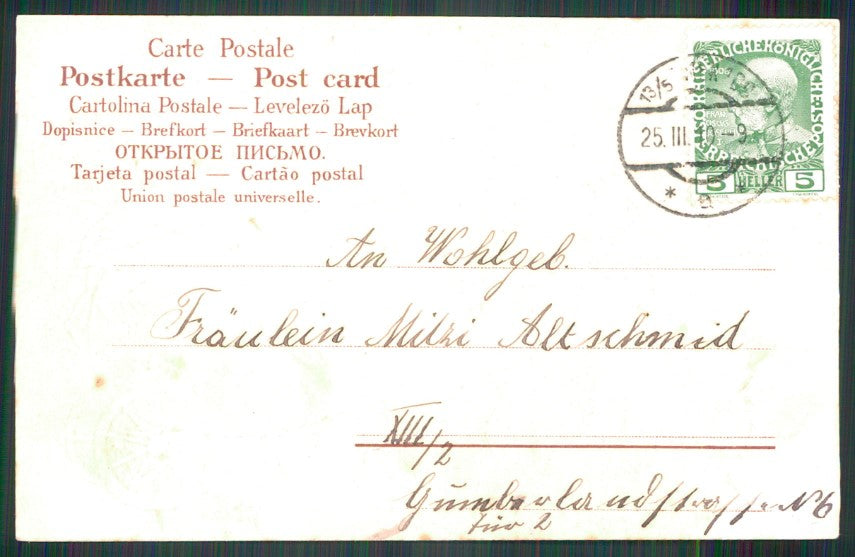 Carte Postale
Postkarte — Post card
Cartolina Postale — Levelező Lap
Dopisnice — Brefkort — Briefkaart — Brevkort
ОТКРЫТОЕ ПИСЬМО.
Tarjeta postal — Cartão postal
Union postale universelle.
KAISERLICHE KÖNIGLICHE ÖSTERREICHISCHE POST
5 HELLER 5
13/5
25. III. 10 - 9
*a*
An Wohlgeb.
Fräulein Mitzi Altschmid
XIII/2
Gumberlandstrasse N 6
Tür 2